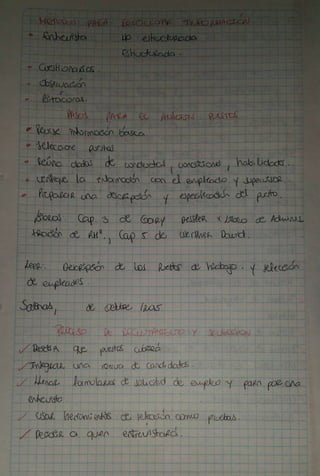 METODOS PARA RECOLECTAR INFORMACIÓN
- Entrevista no estructurada
Estructurada.
- Cuestionarios.
- Observación
- Bitácoras.
PASOS PARA EL ANÁLISIS PUESTOS
- Revise información básica
- Seleccione puestos
- Reúna datos de conductas, condiciones, habilidades.
- verifique la información con el empleado y supervisor
- Preparar una descripción y especificación del puesto.
Cap 3 de Gary Dessler y Libro de Administración de RH., Cap 5 de Werther David.
Leer. Descripción de los Puestos de trabajo. y selección
de empleados.
de octubre
PROCESO DE RECLUTAMIENTO Y SELECCIÓN
✓ Decidir que puestos cubrirá
✓ Integrar una reserva de candidatos.
✓ Llenar formularios de solicitud de empleo y para una
entrevista
✓ Usar herramientas de selección como pruebas.
✓ Decidir a quien entrevistará.